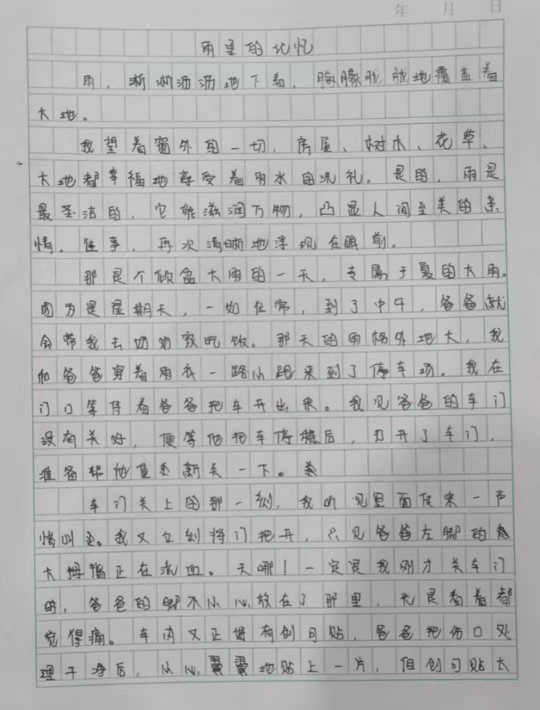 年 月 日
雨里的记忆
雨，淅淅沥沥地下着，朦朦胧胧地覆盖着
大地。
我望着窗外的一切，房屋、树木、花草、
大地都幸福地享受着雨水的洗礼。是的，雨是
最圣洁的，它能滋润万物，凸显人间至美的亲
情。往事，再次清晰地浮现在眼前。
那是个倾盆大雨的一天，专属于夏的大雨。
因为是星期天，一如往常，到了中午，爸爸就
会带我去奶奶家吃饭。那天的雨格外地大，我
和爸爸穿着雨衣一路小跑来到了停车场。我在
门口等待着爸爸把车开出来。我见爸爸的车门
没有关好，便等他把车停稳后，打开了车门，
准备帮他重新关一下。
车门关上的那一刻，我听见里面传来一声
惨叫。我又立刻将门把开，只见爸爸左脚的
大拇指正在流血。天哪！一定是我刚才关车门
时，爸爸的脚不小心放在了那里，光是看着都
觉得痛。车内又正好有创可贴，爸爸把伤口处
理干净后，小心翼翼地贴上一片，但创可贴太